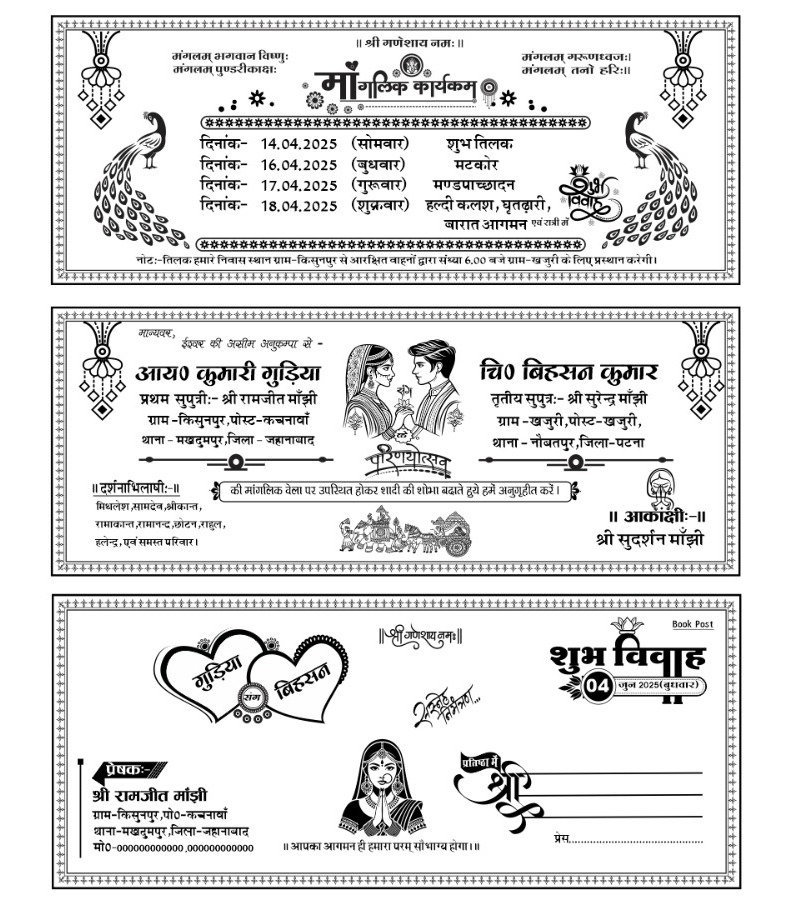 ॥ श्री गणेशाय नमः ॥
मंगलम् भगवान विष्णुः
मंगलम् पुण्डरीकाक्षः
मंगलम् गरूणध्वजः।
मंगलम् तनो हरिः॥
मांगलिक कार्यकम्
दिनांकः- 14.04.2025 (सोमवार) शुभ तिलक
दिनांकः- 16.04.2025 (बुधवार) मटकोर
दिनांकः- 17.04.2025 (गुरूवार) मण्डपाच्छादन
दिनांकः- 18.04.2025 (शुक्रवार) हल्दी कलश, घृतढ़ारी,
बारात आगमन एवं रात्री में
शुभ विवाह
नोटः-तिलक हमारे निवास स्थान ग्राम-किसुनपुर से आरक्षित वाहनों द्वारा संध्या 6.00 बजे ग्राम-खजुरी के लिए प्रस्थान करेगी।
मान्यवर,
ईश्वर की असीम अनुकम्पा से -
आय० कुमारी गुड़िया
प्रथम सुपुत्रीः- श्री रामजीत माँझी
ग्राम-किसुनपुर,पोस्ट-कचनावाँ
थाना - मखदुमपुर,जिला - जहानाबाद
संग
परिणयोत्सव
चि० बिहसन कुमार
तृतीय सुपुत्रः- श्री सुरेन्द्र माँझी
ग्राम -खजुरी,पोस्ट-खजुरी,
थाना - नौबतपुर,जिला-पटना
की मांगलिक वेला पर उपस्थित होकर शादी की शोभा बढाते हुये हमें अनुगृहीत करें ।
॥ दर्शनाभिलाषीः-॥
मिथलेश,सामदेव,श्रीकान्त,
रामाकान्त,रामानन्द,छोटन,राहूल,
हलेन्द्र,एवं समस्त परिवार।
॥ आकांक्षीः-॥
श्री सुदर्शन माँझी
॥श्री गणेशाय नमः॥
Book Post
गुड़िया
संग
बिहसन
शुभ विवाह
04 जुन 2025(बुधवार)
सस्नेह निमंत्रण...
प्रेषकः-
श्री रामजीत मांझी
ग्राम-किसुनपुर,पो०-कचनावाँ
थाना-मखदुमपुर,जिला-जहानाबाद
मो०-000000000000 ,000000000000
॥ आपका आगमन ही हमारा परम् सौभाग्य होगा।॥
प्रतिष्ठा में
श्री
प्रेस...............................................